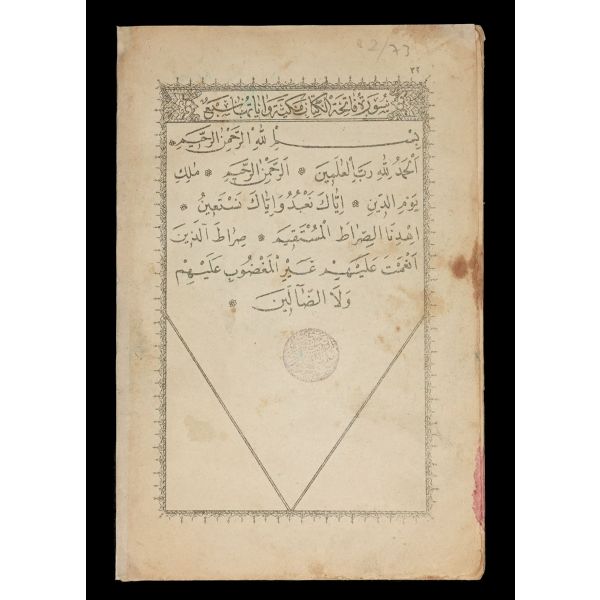 22/73
٣٢
سورة فاتحة الكتاب مكية واياتها سبع
بِسْمِ اللّٰهِ الرَّحْمٰنِ الرَّحِيمِ *
اَلْحَمْدُ لِلّٰهِ رَبِّ الْعَالَمِينَ * اَلرَّحْمٰنِ الرَّحِيمِ * مٰلِكِ
يَوْمِ الدِّينِ * اِيَّاكَ نَعْبُدُ وَاِيَّاكَ نَسْتَعِينُ *
اِهْدِنَا الصِّرَاطَ الْمُسْتَقِيمَ * صِرَاطَ الَّذِينَ
اَنْعَمْتَ عَلَيْهِمْ غَيْرِ الْمَغْضُوبِ عَلَيْهِمْ
وَلَا الضَّٓالِّينَ *